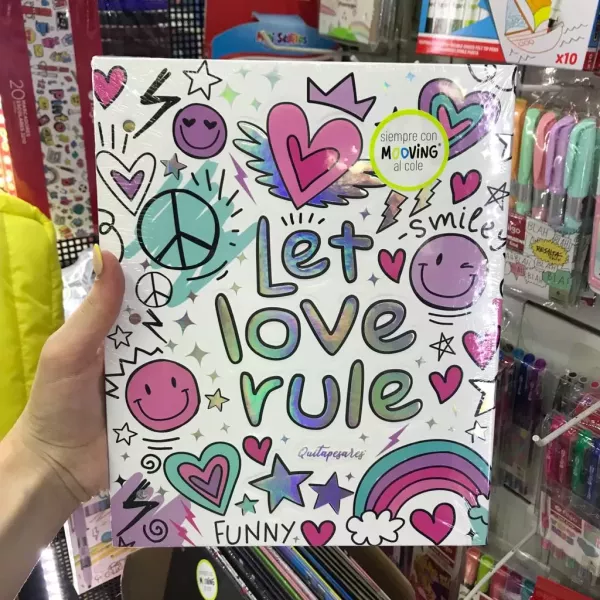 siempre con
MOOVING®
al cole
smiley
Let
love
rule
Quitapesares
FUNNY
x10
20
MOOVING